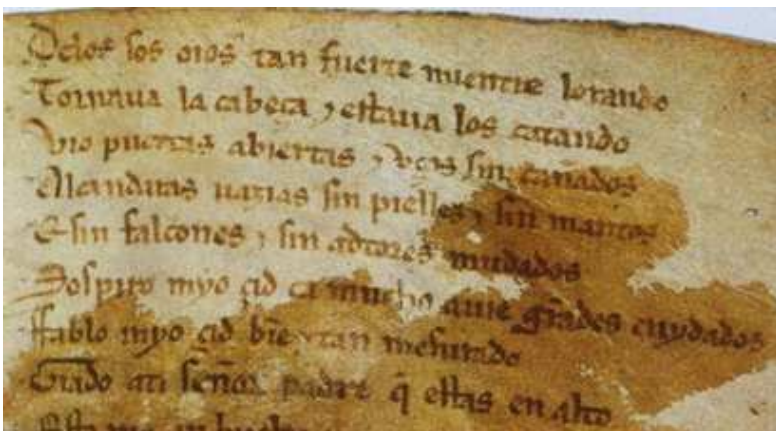 Delos sos oios tan fuerte mientre lorando
Tornaua la cabeça ⁊ estaua los catando
Vio puertas abiertas ⁊ vços sin cañados
Alcandaras uazias sin pielles ⁊ sin mantos
E sin falcones ⁊ sin adtores mudados
Sospiro myo çid ca mucho auie grãdes cuydados
Ffablo myo çid bie ⁊ tan mesurado
Grado ati señor padre q̃ estas en alto
Esto me an buelto